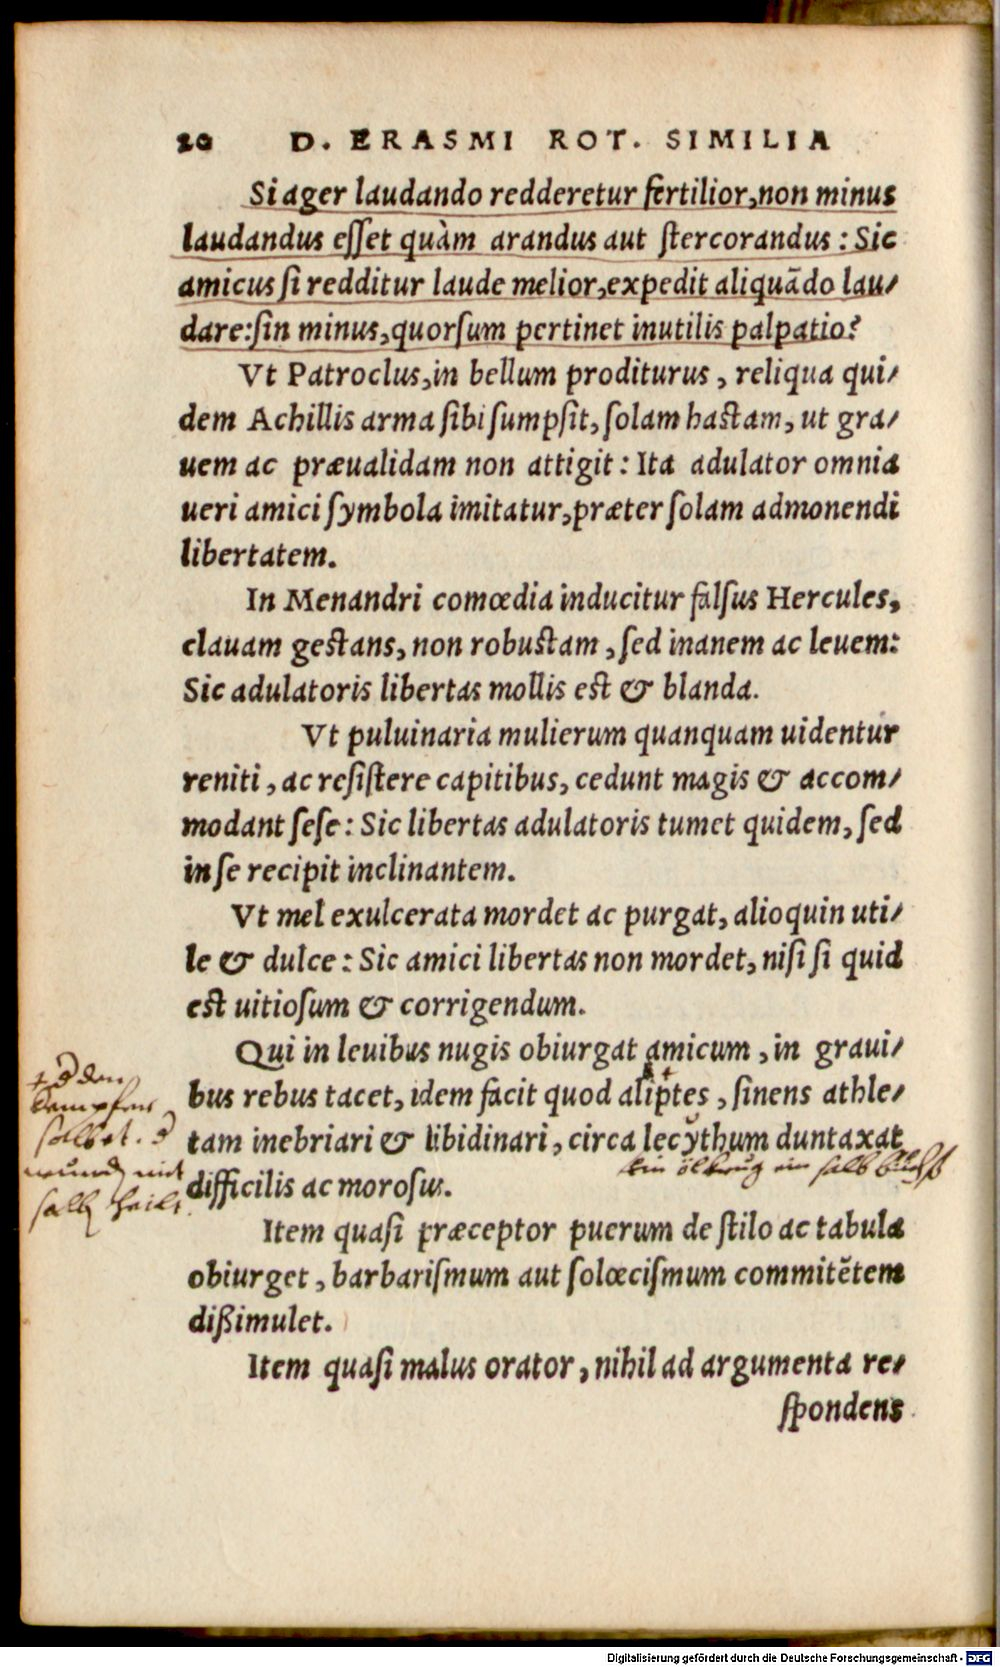 20 D. ERASMI ROT. SIMILIA
Si ager laudando redderetur fertilior, non minus
laudandus eſſet quàm arandus aut ſtercorandus : Sic
amicus ſi redditur laude melior, expedit aliquãdo lau/
dare: ſin minus, quorſum pertinet inutilis palpatio?
Vt Patroclus, in bellum proditurus, reliqua qui/
dem Achillis arma ſibi ſumpſit, ſolam haſtam, ut gra/
uem ac præualidam non attigit : Ita adulator omnia
ueri amici ſymbola imitatur, præter ſolam admonendi
libertatem.
In Menandri comœdia inducitur falſus Hercules,
clauam geſtans, non robuſtam, ſed inanem ac leuem:
Sic adulatoris libertas mollis eſt & blanda.
Vt puluinaria mulierum quanquam uidentur
reniti, ac reſiſtere capitibus, cedunt magis & accom/
modant ſeſe : Sic libertas adulatoris tumet quidem, ſed
in ſe recipit inclinantem.
Vt mel exulcerata mordet ac purgat, alioquin uti/
le & dulce : Sic amici libertas non mordet, niſi ſi quid
eſt uitioſum & corrigendum.
Qui in leuibus nugis obiurgat amicum, in graui/
bus rebus tacet, idem facit quod aliptes, ſinens athle/
tam inebriari & libidinari, circa lecythum duntaxat
difficilis ac moroſus.
+ den
kempfer
ſalbet.
wund mit
ſalb heilt
ein ölkrug ein ſalb büchß
Item quaſi præceptor puerum de ſtilo ac tabula
obiurget, barbariſmum aut ſolœciſmum commitẽtem
dißimulet.
Item quaſi malus orator, nihil ad argumenta re/
ſpondens
Digitalisierung gefördert durch die Deutsche Forschungsgemeinschaft - DFG